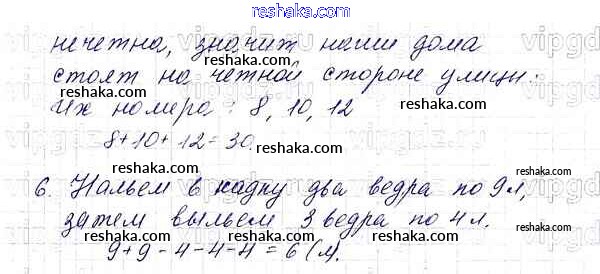 reshaka.com
нечетна, значит наши дома
стоят на четной стороне улицы.
reshaka.com
Их номера: 8, 10, 12
reshaka.com
8+10+12=30.
reshaka.com
6. Нальем в кадку два ведра по 9л,
reshaka.com
затем выльем 3 ведра по 4л.
reshaka.com
9+9-4-4-4=6(л).
reshaka.com
reshaka.com